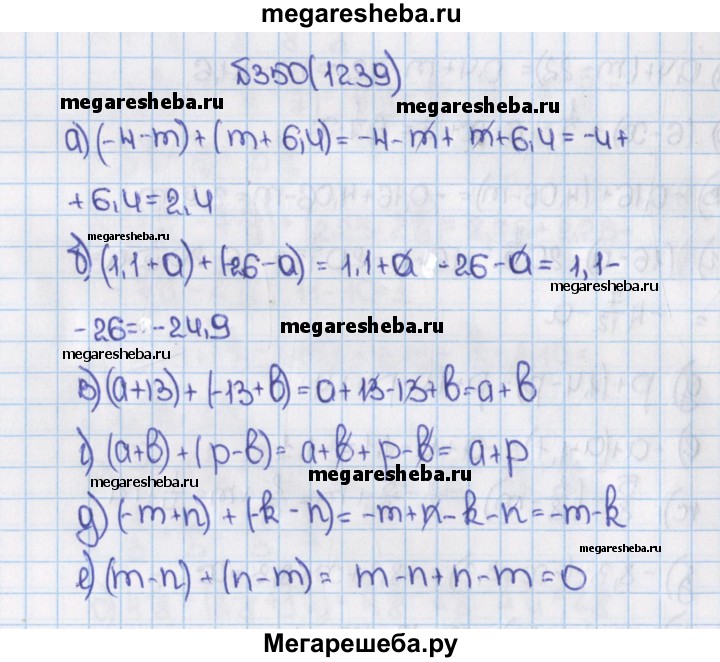 megaresheba.ru
№350(1239)
megaresheba.ru megaresheba.ru
а) (-4-m)+(m+6,4)=-4-m+m+6,4=-4+
+6,4=2,4
megaresheba.ru
б) (1,1+a)+(-26-a)=1,1+a-26-a=1,1-
-26=-24,9 megaresheba.ru
megaresheba.ru
в) (a+13)+(-13+b)=a+13-13+b=a+b
г) (a+b)+(p-b)=a+b+p-b=a+p
megaresheba.ru megaresheba.ru
д) (-m+n)+(-k-n)=-m+n-k-n=-m-k
megaresheba.ru
е) (m-n)+(n-m)=m-n+n-m=0
Мегарешеба.ру